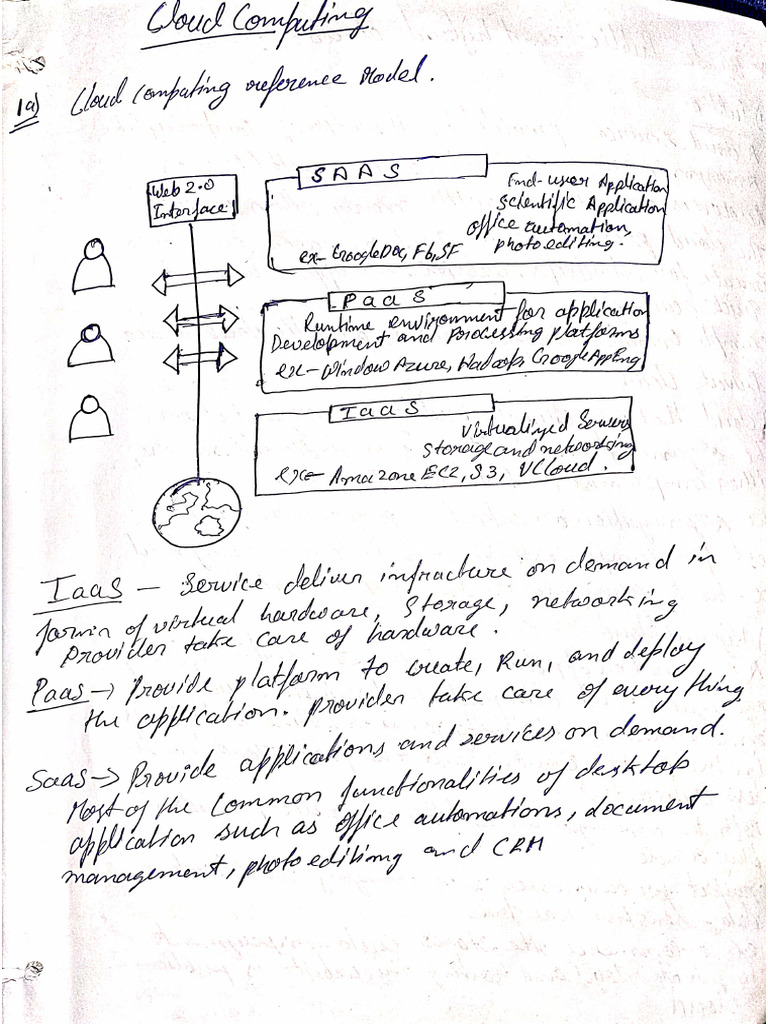 Cloud Computing
1a) Cloud Computing reference Model.
Web 2.0
Interface
SAAS
End-user Application
Scientific Application
office automation,
photoediting.
ex- GoogleDoc, Fb, SF
PaaS
Runtime environment for application
Development and Processing platforms
ex- Window Azure, Hadoop, Google AppEng
IaaS
Virtualized Servers
Storage and networking
ex- Amazone EC2, S3, VCloud.
IaaS – Service deliver infracture on demand in
formin of virtual hardware, Storage, networking
provider take care of hardware.
Paas → Provide platform to create, Run, and deploy
the application. provider take care of everything
Saas → Provide applications and services on demand.
Most of the Common functionalities of desktop
application such as office automations, document
management, photoediting and CRM